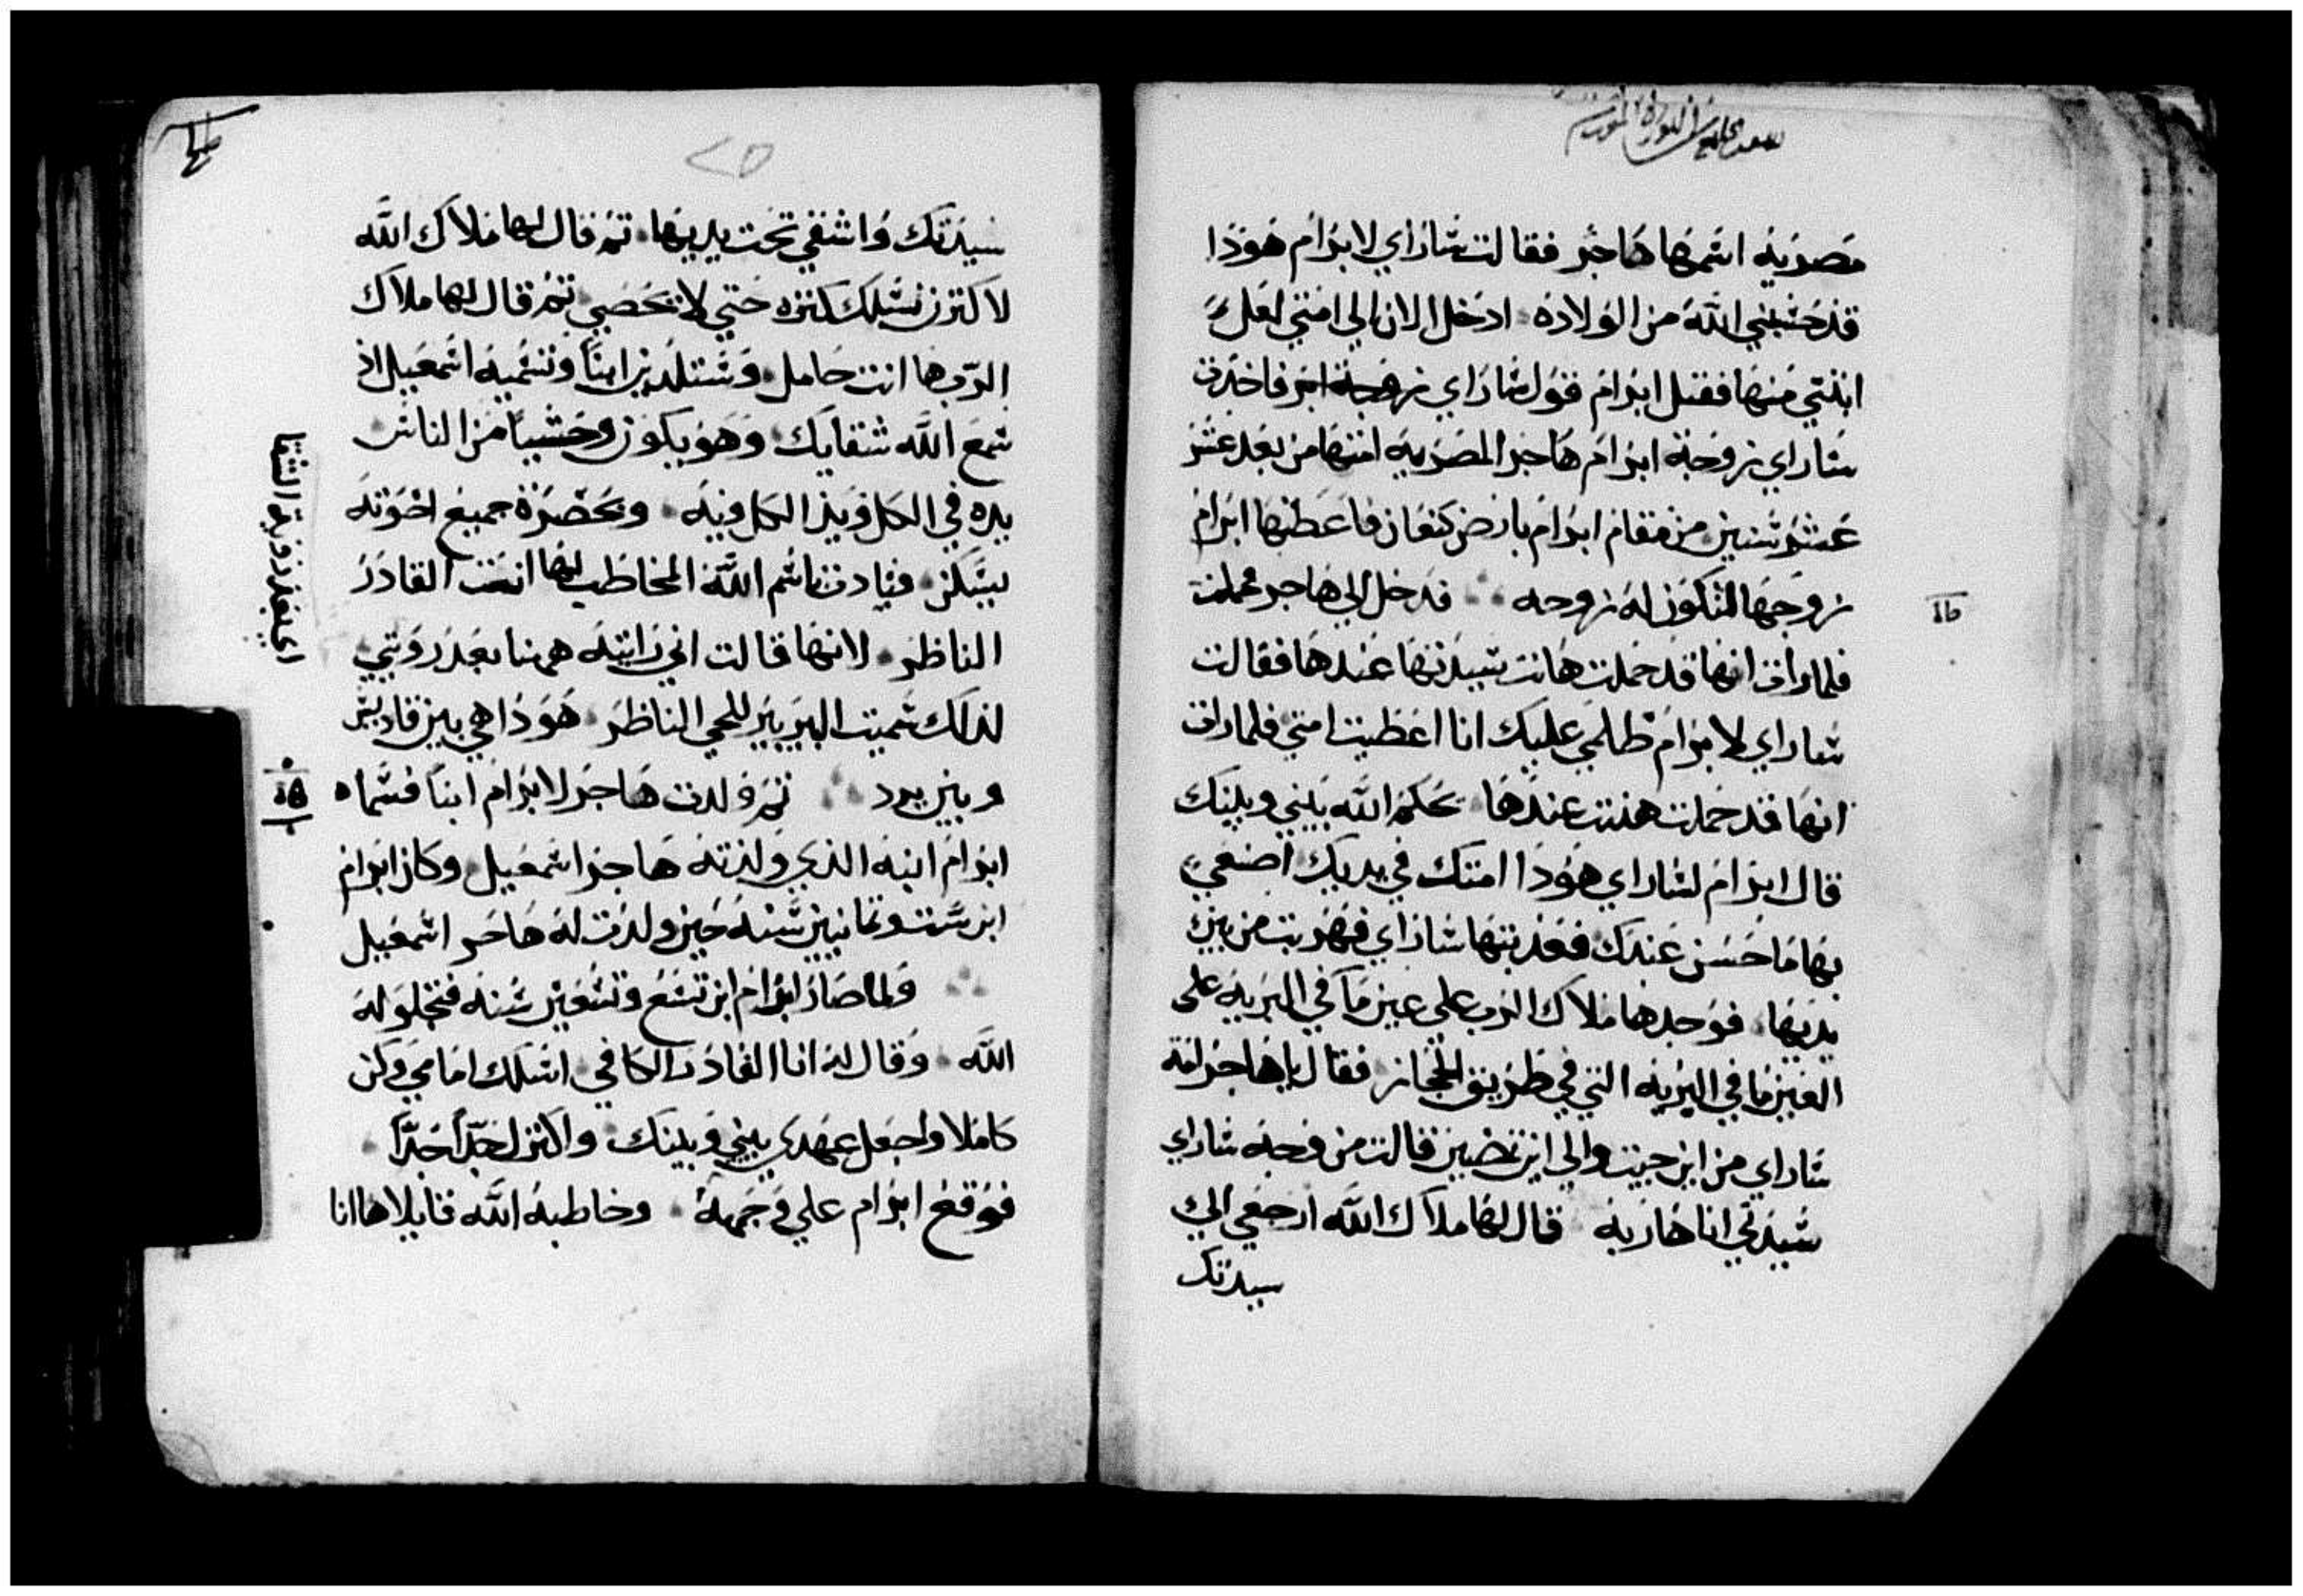 مصريه اسمها هاجر فقالت ساراي لابرام هوذا
قد حبسني الله من الولاده ادخل الان الي امتي لعل
ابنتي منها فقبل ابرام قول ساراي زوجة ابر فاخدت
ساراي زوجة ابرام هاجر المصريه امتها من بعد عشر
عشر سنين من مقام ابرام بارض كنعان فاعطتها ابرام
زوجها لتكون له زوجه فدخل الي هاجر فحملت
فلما رات انها قد حملت هانت سيدتها عندها فقالت
ساراي لابرام ظلمي عليك انا اعطيت امتي فلما رات
انها قد حملت هنت عندها يحكم الله بيني وبينك
قال ابرام لساراي هوذا امتك في يديك اصنعي
بها ما حسن عندك فعذبتها ساراي فهربت من بين
يديها فوجدها ملاك الرب علي عين ما في البريه علي
العين ما في البريه التي في طريق الحجاز فقال يا هاجر امة
ساراي من اين جيت والي اين تمضين قالت من وجه ساراي
سيدتي انا هاربه قال لها ملاك الله ارجعي الي
سيدتك
٢٥
سيدتك واشقي تحت يديها ثم قال لها ملاك الله
لاكثرن نسلك كثره حتي لا تحصي ثم قال لها ملاك
الرب ها انت حامل وستلدين ابنا وتسميه اسمعيل اذ
سمع الله شقايك وهو يكون وحشيا من الناس
يده في الكل ويد الكل فيه وبحضرة جميع اخوته
يسكن فنادت باسم الله المخاطب لها انت القادر
الناظر لانها قالت اني رايته ههنا بعد رويتي
لذلك سميت البير بير للحي الناظر هوذا هي بين قاديش
وبين برد ثم ولدت هاجر لابرام ابنا فسماه
ابرام ابنه الذي ولدته هاجر اسمعيل وكان ابرام
ابن ست وثمانين سنه حين ولدت له هاجر اسمعيل
ولما صار ابرام ابن تسع وتسعين سنه فتجلوله
الله وقال له انا القادر الكافي اسلك امامي وكن
كاملا واجعل عهدي بيني وبينك واكثرك جدا جدا
فوقع ابرام علي وجهه وخاطبه الله قايلا ها انا